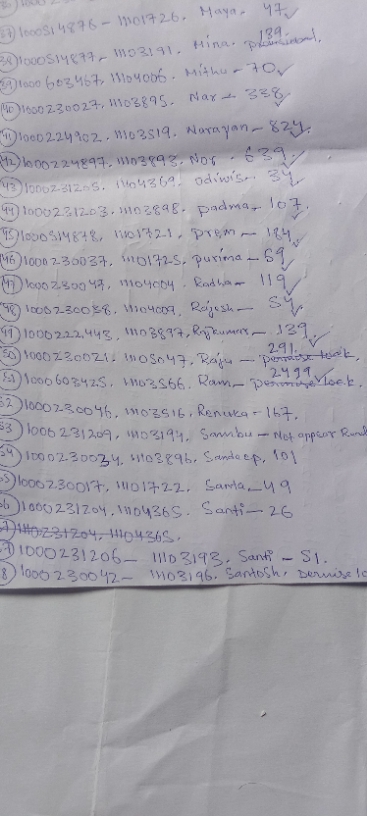 37) 1000514876 - 11101726, Maya. 47 ✓
38) 1000514877 - 11103191. Mina. 139.
39) 1000603467, 11104006. Mithu - 70 ✓
40) 1000230027, 11103895. Nar - 338 ✓
41) 1000224902. 11103519. Narayan - 824 ✓
42) 1000224897. 11103893. Nor - 639 ✓
43) 1000231205. 11104369. Odiwis. 34 ✓
44) 1000231203. 11103898. padma - 107 ✓
45) 1000514878, 11101721. prem - 184 ✓
46) 1000230037, 11101725, purima - 69 ✓
1000230047, 11104004. Radha - 119 ✓
48) 1000230038, 11104007. Rajesh - 54 ✓
49) 1000222443, 11103897, Rajkumar - 139. ✓
50) 1000230021, 11105047, Raju - 291 ✓
51) 1000603425, 11103566. Ram - 2499 ✓
52 1000230046, 11103516, Renuka - 167.
53 1000231209, 11103194. Sambu - Not appear
54 1000230034, 11103896. Sandeep, 101
55 1000230017, 11101722. Santa - 49
56 1000231204, 11104365. Santi - 26
1110231204, 11104365.
7) 1000231206 - 11103193. Santi - 51.
8) 1000230042 - 11103196. Santosh.